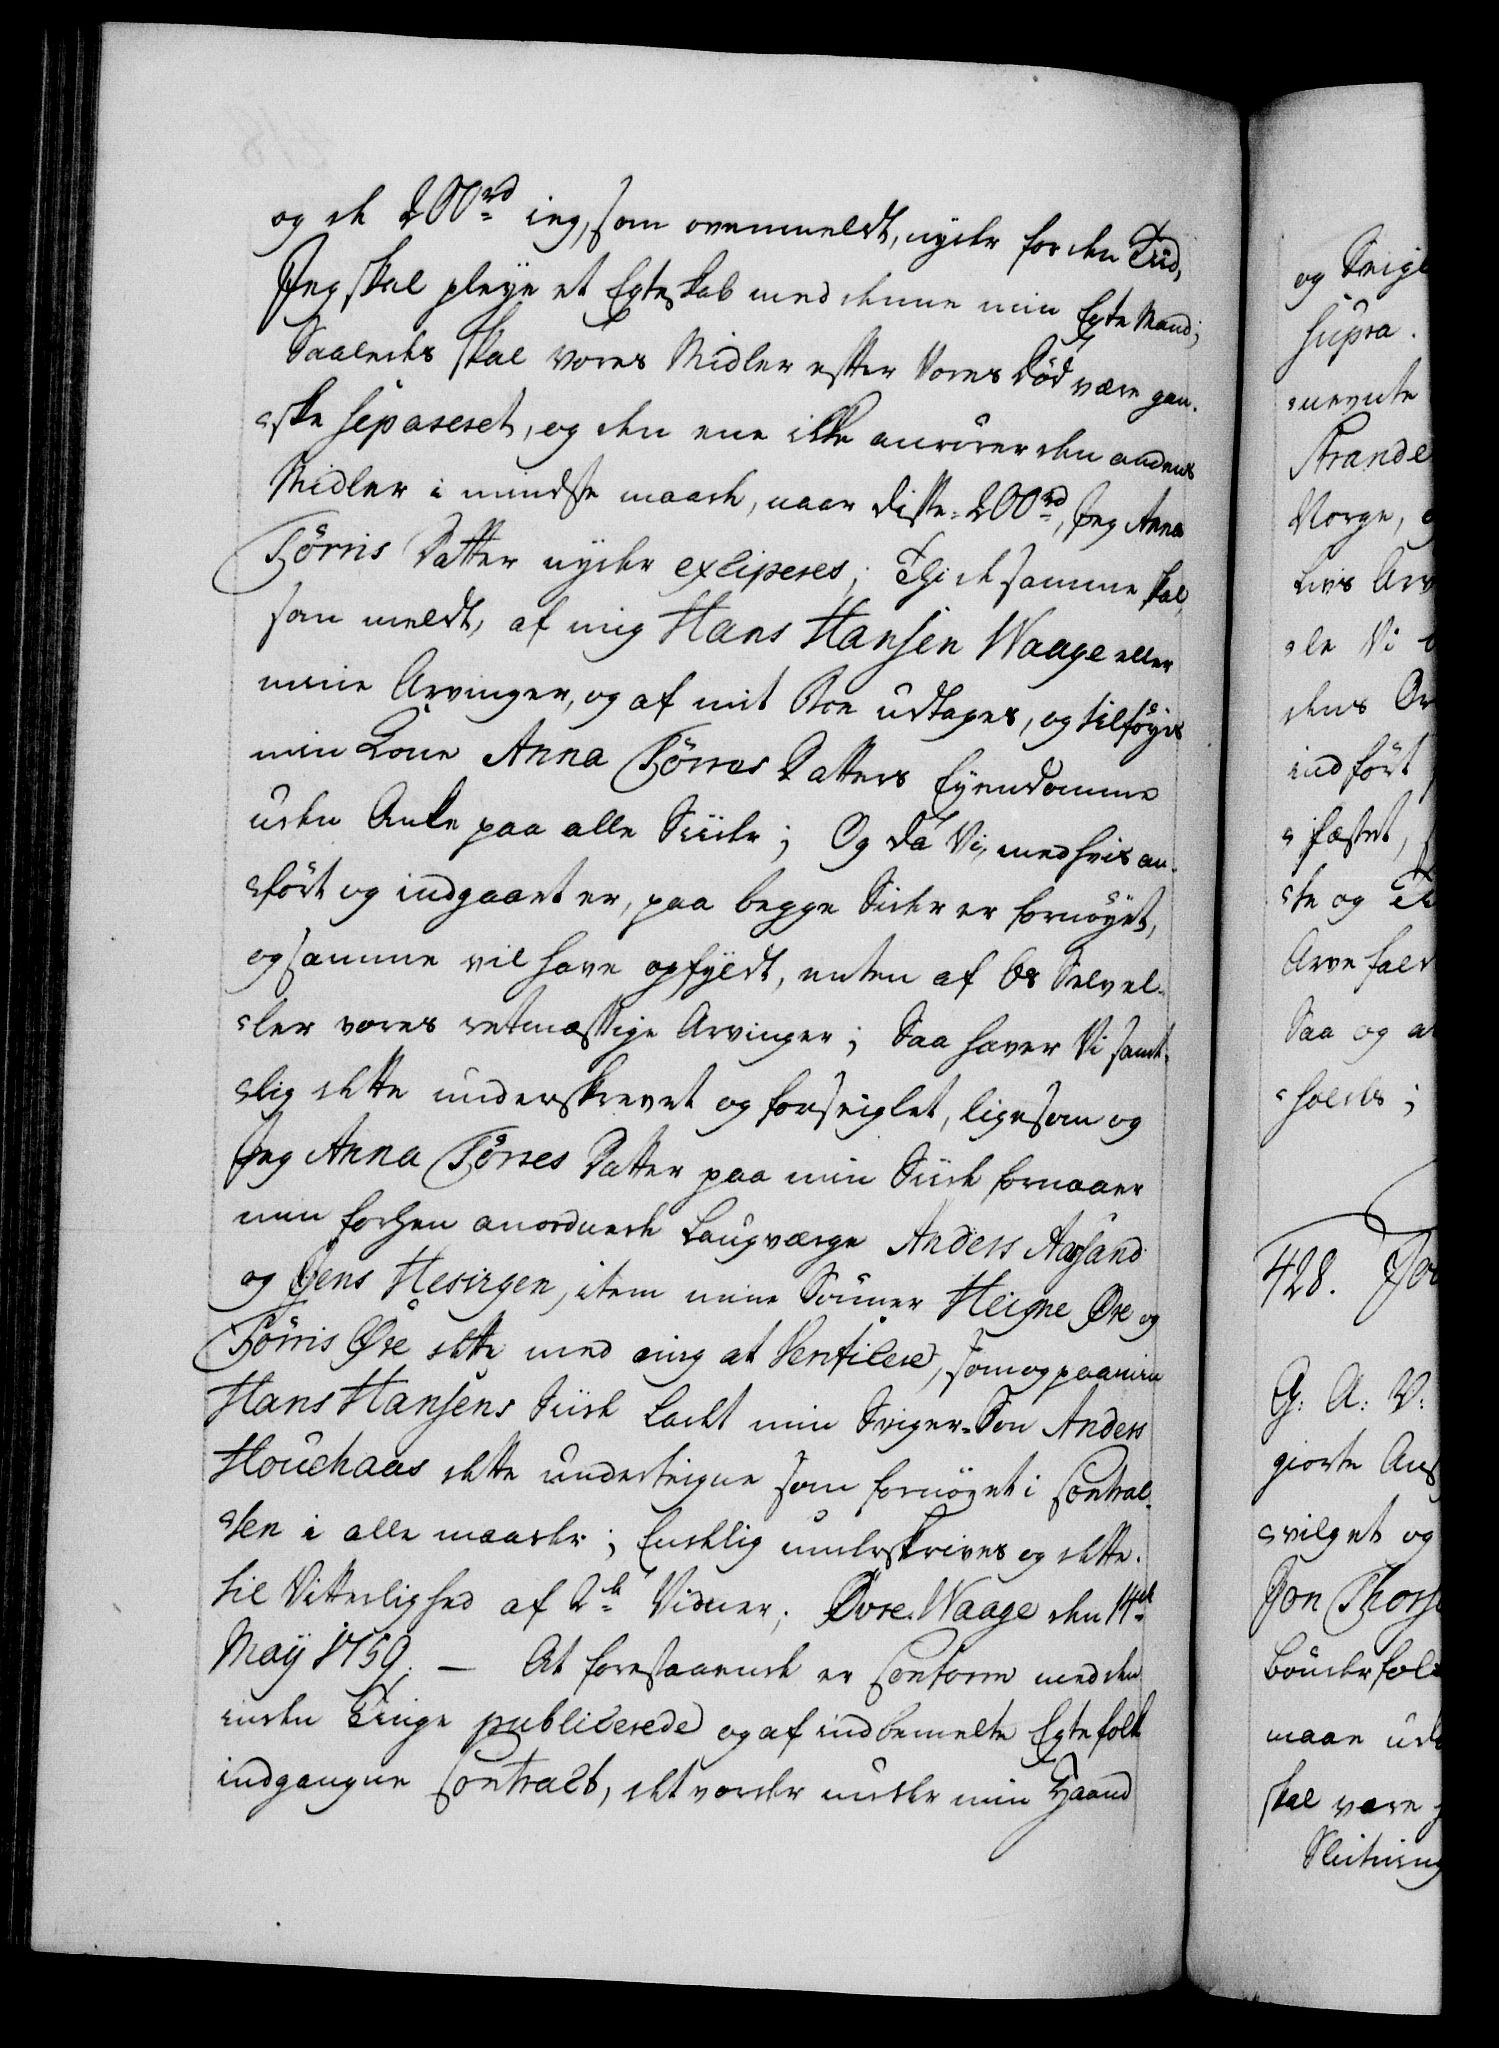 og de 200 rd jeg, som ovenmeldt, nyder for den Tiid,
Jeg skal pleye et Egteskab med denne min Egte Mand;
Saaledes skal vores Midler efter Vores Död være gan-
ske separeret, og den ene ikke anrörer den andens
Midler i mindste maade, naar disse 200 rd, Jeg Anna
Törris Datter nyder exciperes; Thi de samme skal,
som meldt, af mig Hans Hansen Waage eller
mine Arvinger, og af mit Boe udtages, og tilföyes
min Kone Anna Törres Datters Eyendomme
uden Anke paa alle Siider; Og da Vi, med hvis an-
fört og indgaaet er, paa begge Sider er fornöyet,
og samme vil have opfyldt, enten af Os Selv el-
ler vores retmæssige Arvinger; Saa haver Vi samt-
lig dette underskrevet og forseiglet, ligesom og
Jeg Anna Törres Datter paa min Siide formaaer
min forhen anordnede Laugværge Anders
og Jens, item mine Sönner Heigne Øre og
Törris Øre dette med mig at Ventilere, som og paa min
Hans Hansens Siide Ladet min Sviger-Sön Anders
Houchaas dette underteigne som fornöyet i Contrac-
ten i alle maader; Endelig underskrives og dette
til Vitterlighed af 2de Vidner; Øvre Waage den 14de
Maÿ 1759. — At forestaaende er Conform med den
inden Tinge publicerede og af indbemelte Egtefolk
indgangne Contract, det vorder under min Haand
og Seigl
supra.
nevnte
Strande
Norge,
Livs Arv
le Vi
dens
indfört
fæstet,
te og
Arvefald
Saa og
holdes;
428. Jon
G: A: V:
giorte Ans
vilget og
Jon Thors
Bönderfol
maae
skal være
Skiftning